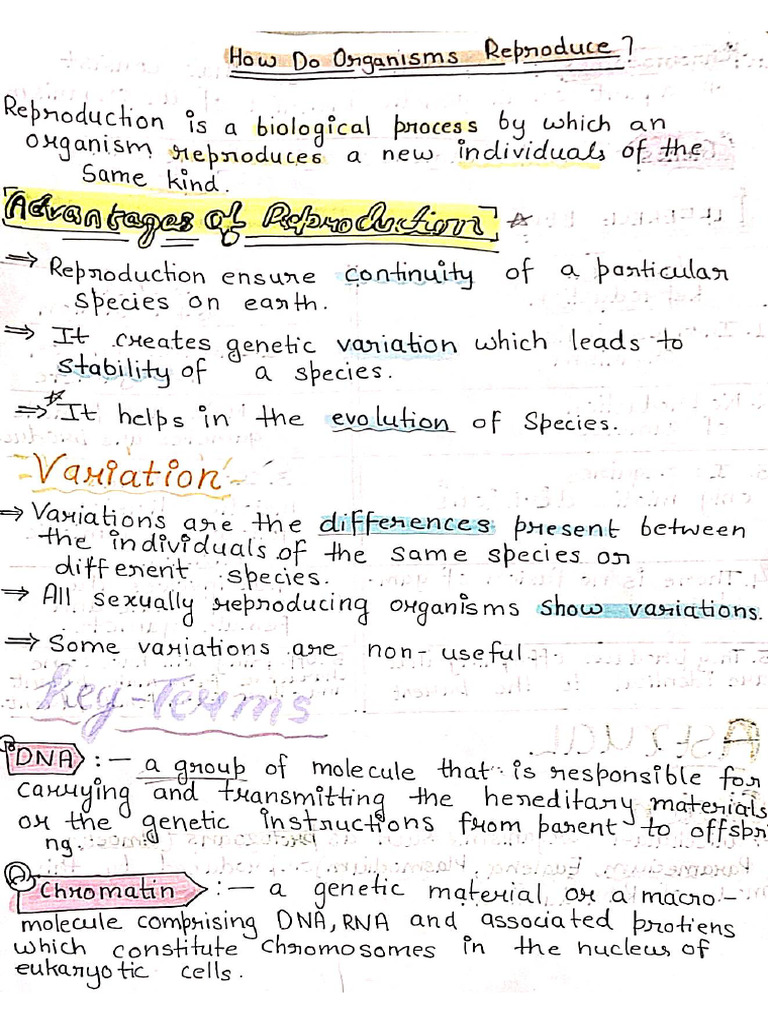 How Do Organisms Reproduce?
Reproduction is a biological process by which an
organism reproduces a new individuals of the
same kind.
Advantages of Reproduction
⇒ Reproduction ensure continuity of a particular
species on earth.
⇒ It creates genetic variation which leads to
stability of a species.
⇒ It helps in the evolution of Species.
Variation
⇒ Variations are the differences present between
the individuals of the same species or
different species.
⇒ All sexually reproducing organisms show variations.
⇒ Some variations are non-useful
Key-Terms
DNA :— a group of molecule that is responsible for
carrying and transmitting the hereditary materials
or the genetic instructions from parent to offspri
ng.
Chromatin :— a genetic material or a macro-
molecule comprising DNA, RNA and associated protiens
which constitute chromosomes in the nucleus of
eukaryotic cells.